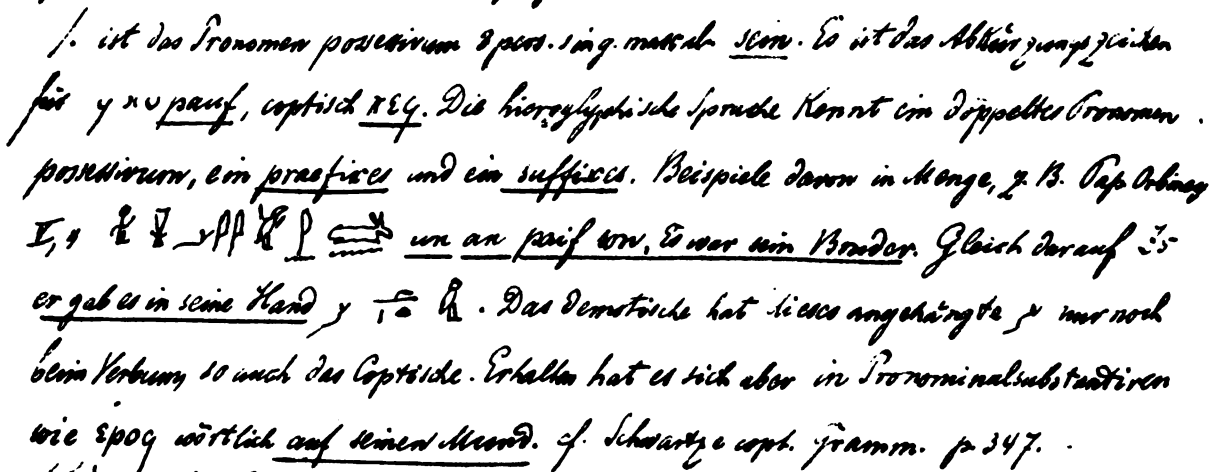 /. ist das Pronomen possessivum 3 pers. sing. mascul. sein. Es ist das Abkürzungszeichen
für pauf, coptisch ⲡⲉϥ. Die hieroglyphische Sprache kennt ein doppeltes Pronomen
possessivum, ein praefixes und ein suffixes. Beispiele davon in Menge, z. B. Pap. Orbiney
un an paif son, Es war sein Bruder. Gleich darauf
er gab es in seine Hand. Das Demotische hat dieses angehängte nur noch
beim Verbum, so auch das Coptische. Erhalten hat es sich aber in Pronominalsubstantiven
wie ⲉⲣⲟϥ wörtlich auf seinen Mund. cf. Schwartze copt. Gramm. p. 347.